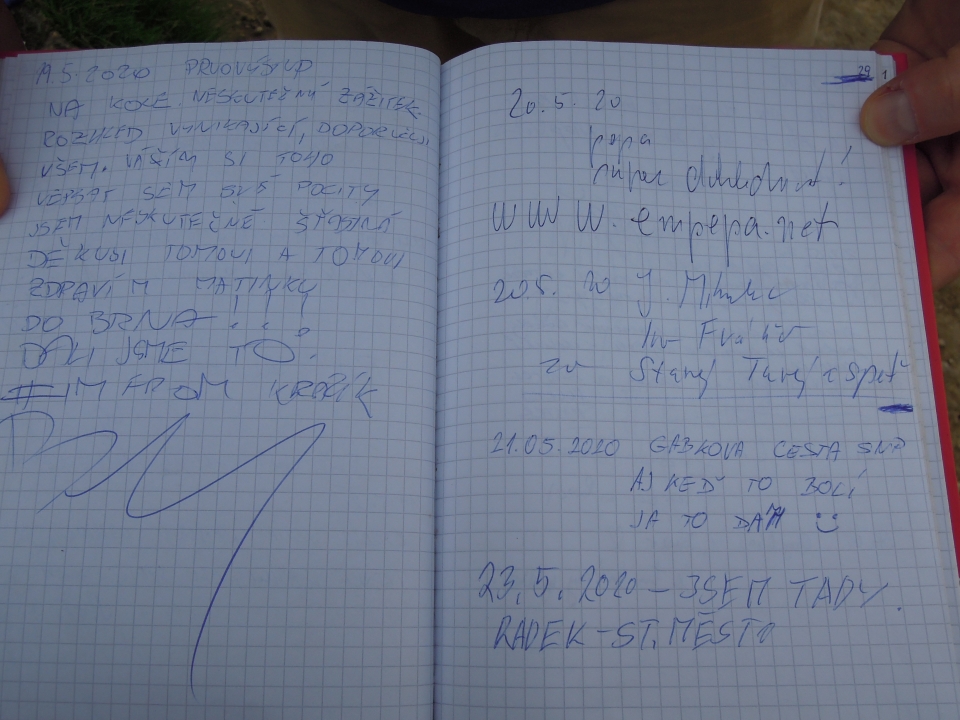 19.5.2020 PRVOVÝSTUP
NA KOLE NESKUTEČNÝ ZÁŽITEK
ROZHLED VYNIKAJÍCÍ, DOPORUČUJI
VŠEM. VÁŽÍM SI TOHO
VEPSAT SEM SVÉ POCITY
JSEM NESKUTEČNĚ ŠŤASTNÁ
DĚKUJI TOMOVI A TOMOVI
ZDRAVÍM MATINKY
DO BRNA...
DALI JSME TO!
#IM FROM KREČÍK
29
1
20.5. 20
pepa
super
www.empepa.net
20.5. 20 J.
Starý
21.05.2020 GABKOVA CESTA SNP
AJ KEĎ TO BOLÍ
JA TO DÁM
23.5.2020 – JSEM TADY.
RADEK – ST. MĚSTO